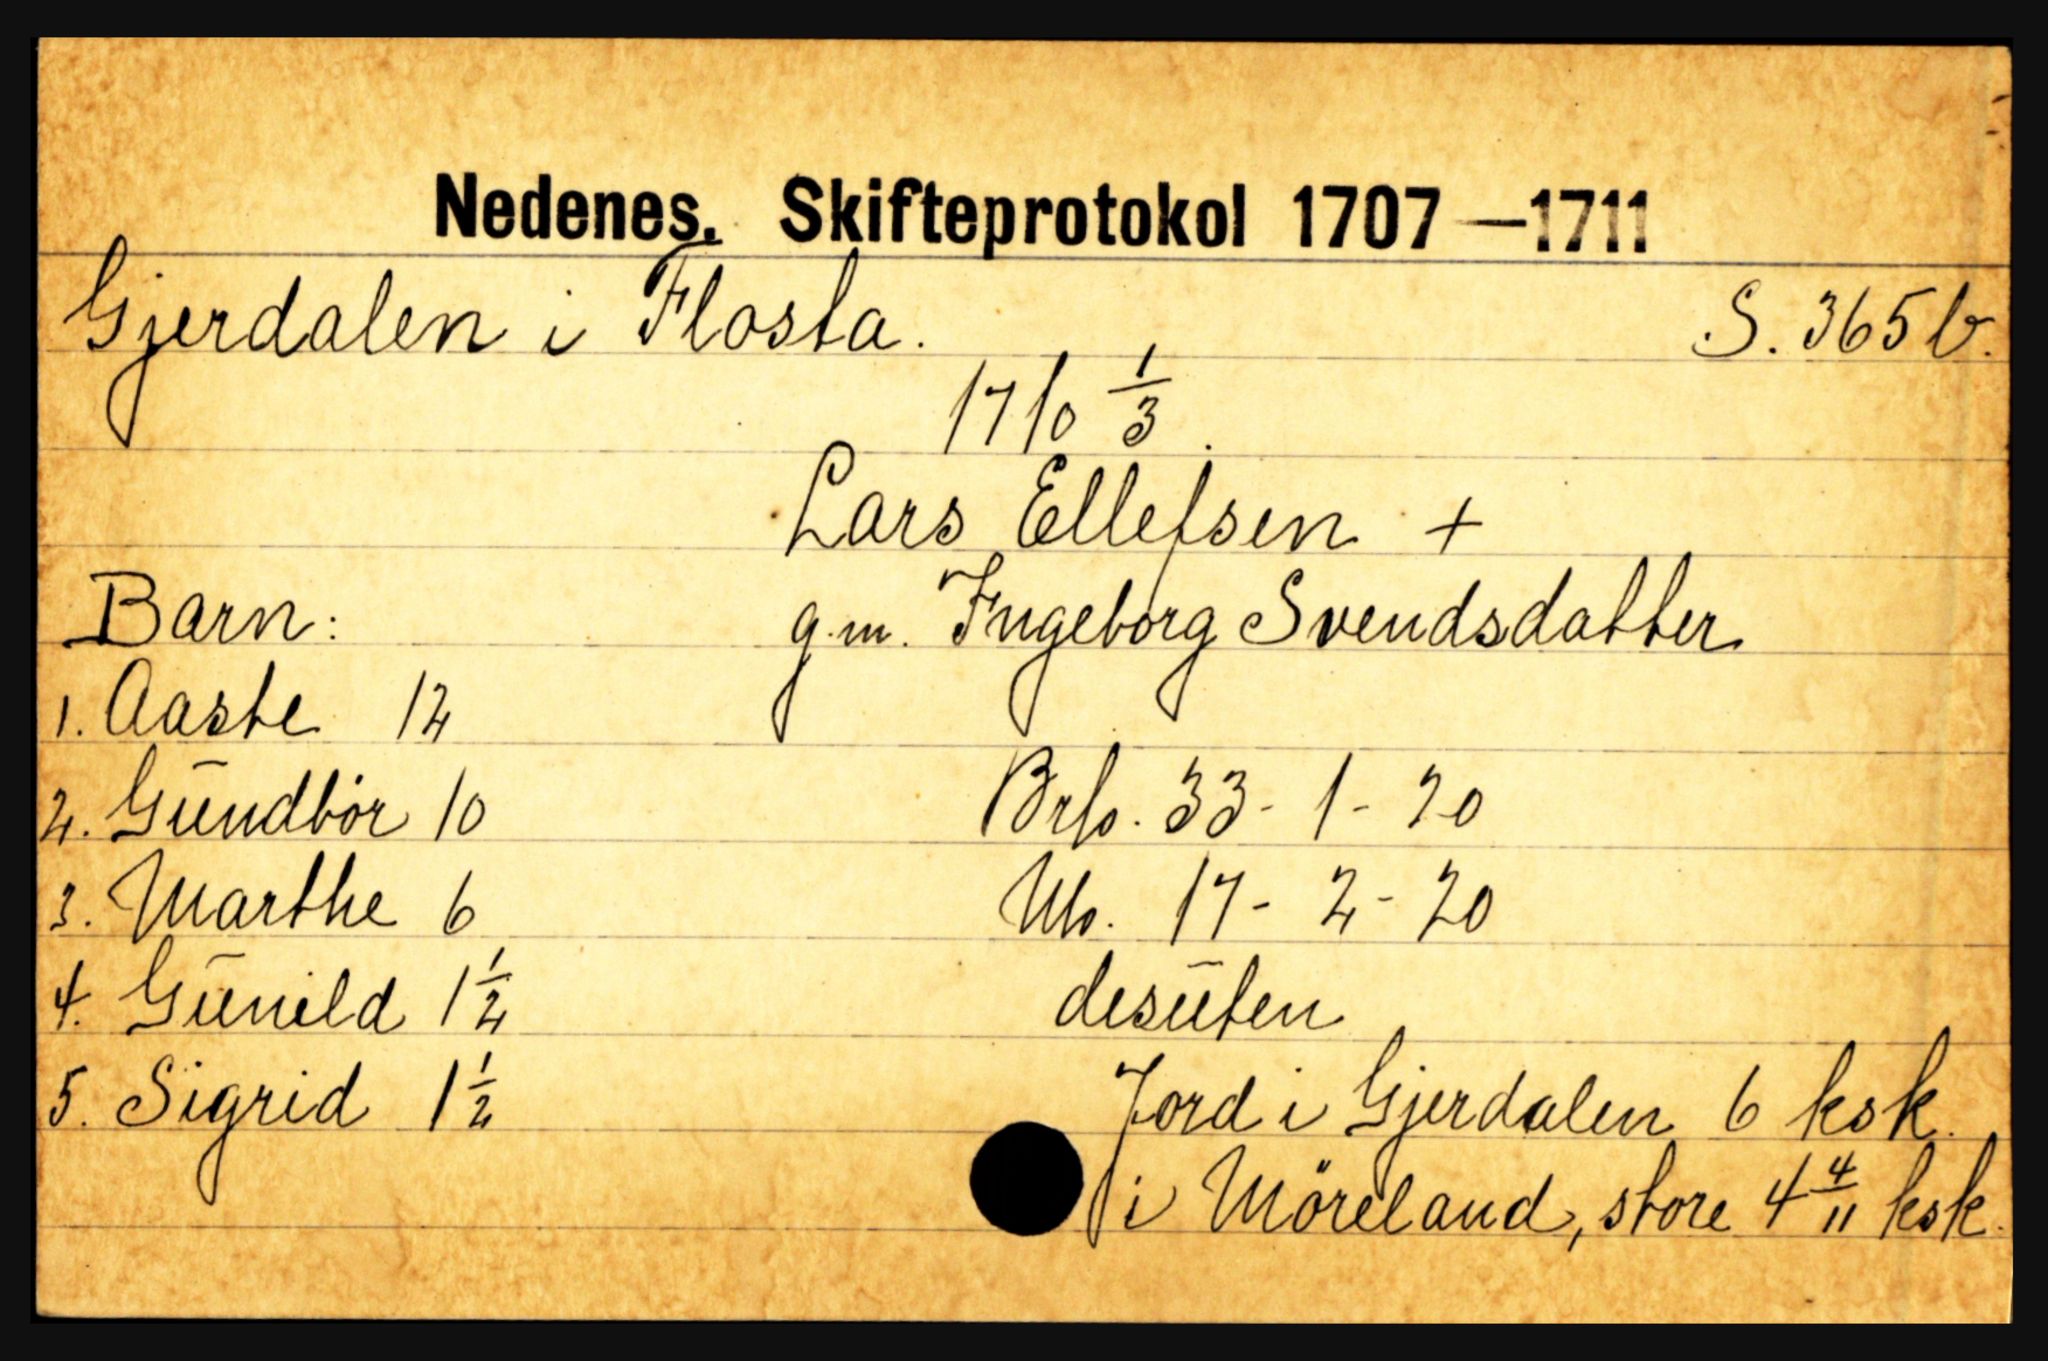 Nedenes. Skifteprotokol 1707 —1711
Gjerdalen i Flosta. S. 365 b.
1710 1/3.
Lars Ellefsen +
Barn: g.m. Ingeborg Svendsdatter
1. Aaste 12
2. Gūndbör 10 Brto. 33 - 1 - 20
3. Marthe 6 Nto. 17 - 2 - 20
4. Gūnild 1 1/2 desūten
5. Sigrid 1 1/2 Jord i Gjerdalen 6 ksk.
i Möreland, store 4 4/11 ksk.